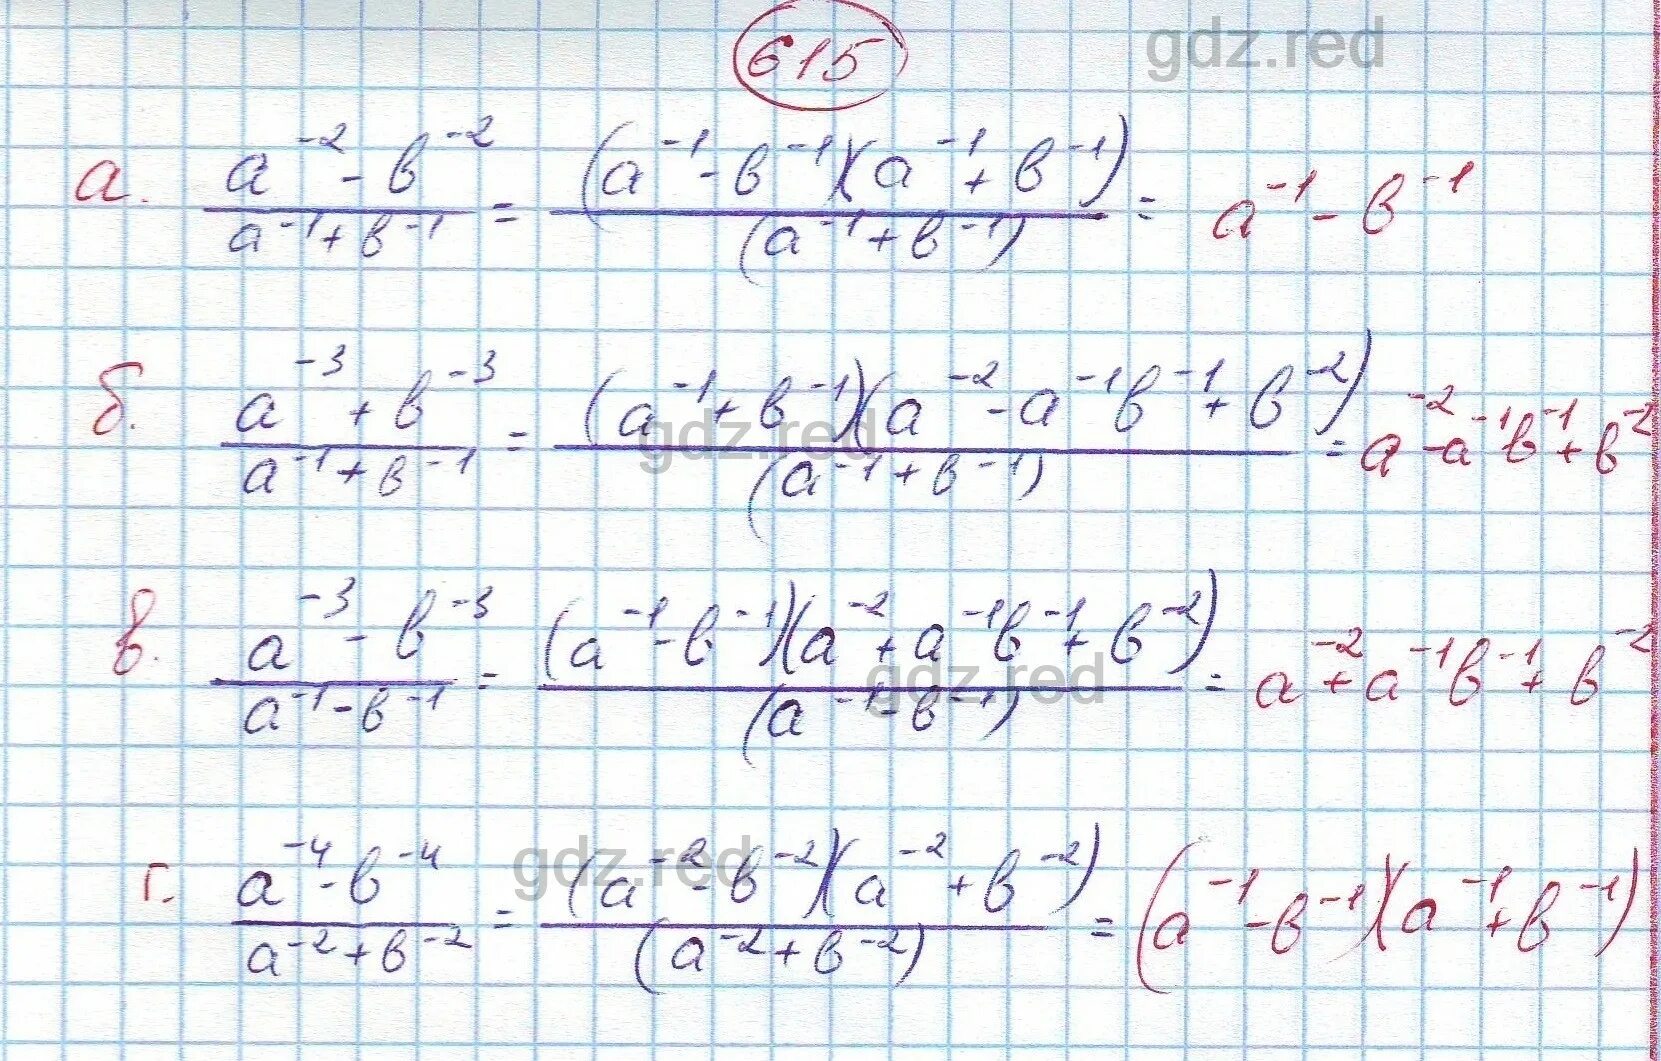 615
gdz.red
а. a⁻² - b⁻² / a⁻¹ + b⁻¹ = (a⁻¹ - b⁻¹)(a⁻¹ + b⁻¹) / (a⁻¹ + b⁻¹) = a⁻¹ - b⁻¹
б. a⁻³ + b⁻³ / a⁻¹ + b⁻¹ = (a⁻¹ + b⁻¹)(a⁻² - a⁻¹b⁻¹ + b⁻²) / (a⁻¹ + b⁻¹) = a⁻² - a⁻¹b⁻¹ + b⁻²
gdz.red
в. a⁻³ - b⁻³ / a⁻¹ - b⁻¹ = (a⁻¹ - b⁻¹)(a⁻² + a⁻¹b⁻¹ + b⁻²) / (a⁻¹ - b⁻¹) = a⁻² + a⁻¹b⁻¹ + b⁻²
gdz.red
г. a⁻⁴ - b⁻⁴ / a⁻² + b⁻² = (a⁻² - b⁻²)(a⁻² + b⁻²) / (a⁻² + b⁻²) = (a⁻¹ - b⁻¹)(a⁻¹ + b⁻¹)
gdz.red